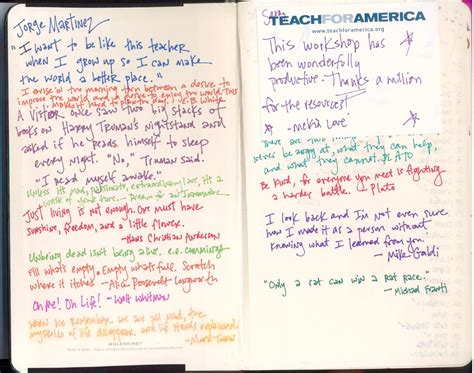 Jorge Martinez
"I want to be like this teacher
when I grow up so I can make
the world a better place."
I arise in the morning torn between a desire to
improve the world and a desire to enjoy the world. This
makes it hard to plan the day. E.B. White
A visitor once saw two big stacks of
books on Harry Truman's nightstand and
asked if he reads himself to sleep
every night. "No," Truman said.
"I read myself awake."
Unless it's mad, passionate, extraordinary love, it's a
waste of your time.
Just living is not enough. One must have
sunshine, freedom, and a little flower.
-Hans Christian Anderson
Unbeing dead isn't being alive. e.e. cummings
Fill what's empty. Empty what's full. Scratch
where it itches - Alice Roosevelt Longworth
Oh Me! Oh Life! - Walt Whitman
When we remember we are all mad, the
mysteries of life disappear and life stands explained.
-Mark Twain
MOLESKINE
Sara,
TEACHFORAMERICA
www.teachforamerica.org
This workshop has
been wonderfully
productive. Thanks a million
for the resources!
-mekia love
There are two things
never be angry at, what they can help,
and what they cannot. PLATO
Be kind, for everyone you meet is fighting
a harder battle. - Plato
I look back and I'm not even sure
how I made it as a person without
knowing what I learned from you.
- Mike Galdi
"Only a rat can win a rat race."
- Michael Fratti